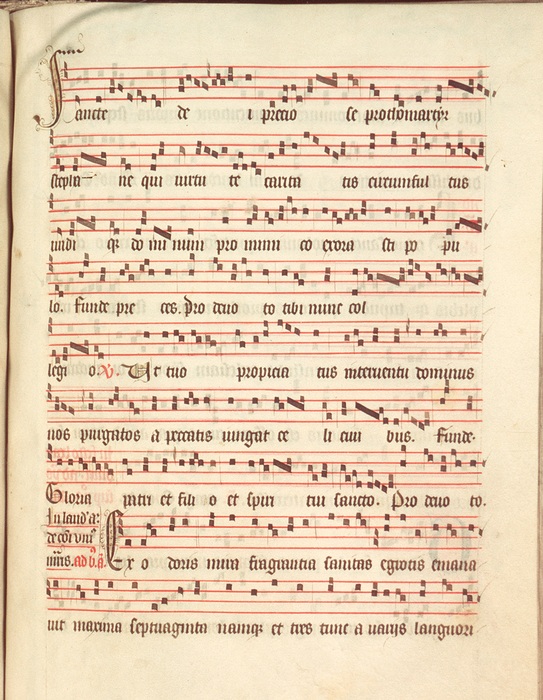 Sancte de i precio se prothomartir
stepha ne qui virtu te carita tis circumful tus
undi q do mi num pro inimi co exora sti po pu
lo. Funde pre ces. Pro devo to tibi nunc col
legi o. V. Ut tuo propicia tus interventu dominus
nos purgatos a peccatis iungat ce li civi bus. Funde.
Gloria patri et fili o et spiri tui sancto. Pro devo to.
In laud
Ex o doris mira fragrantia sanitas egrotis emana
vit maxima septuaginta namq et tres tunc a variis languori